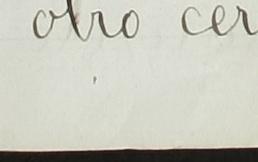 otro cer